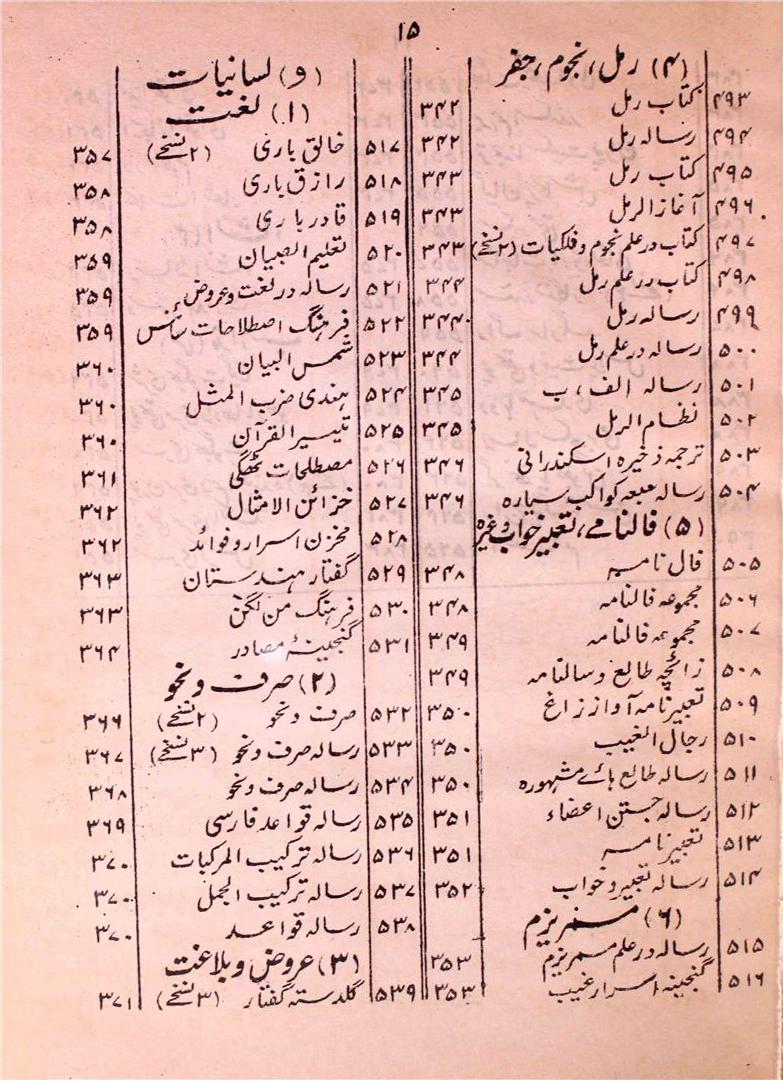 ۱۵
(۴) رمل، نجوم، جفر
۴۹۳ کتاب رمل ۳۴۲
۴۹۴ رسالہ رمل ۳۴۲
۴۹۵ کتاب رمل ۳۴۳
۴۹۶ آغاز الرمل ۳۴۳
۴۹۷ کتاب در علم نجوم و فلکیات (۲ نسخے) ۳۴۳
۴۹۸ کتاب در علم رمل ۳۴۴
۴۹۹ رسالہ رمل ۳۴۴
۵۰۰ رسالہ در علم رمل ۳۴۴
۵۰۱ رسالہ الف، ب ۳۴۵
۵۰۲ نظام الرمل ۳۴۵
۵۰۳ ترجمہ ذخیرہ اسکندرانی ۳۴۶
۵۰۴ رسالہ سبعہ کواکب سیارہ ۳۴۶
(۵) فالنامے، تعبیر خواب وغیرہ
۵۰۵ فال نامہ ۳۴۸
۵۰۶ مجموعہ فالنامہ ۳۴۸
۵۰۷ مجموعہ فالنامہ ۳۴۹
۵۰۸ زائچہ طالع و سالنامہ ۳۴۹
۵۰۹ تعبیر نامہ آواز زاغ ۳۵۰
۵۱۰ رجال الغیب ۳۵۰
۵۱۱ رسالہ طالع ہائے مشہورہ ۳۵۰
۵۱۲ رسالہ جستن اعضاء ۳۵۱
۵۱۳ تعبیر نامہ ۳۵۱
۵۱۴ رسالہ تعبیر و خواب ۳۵۲
(۶) مسمریزم
۵۱۵ رسالہ در علم مسمریزم ۳۵۳
۵۱۶ گنجینہ اسرار غیب ۳۵۳
(و) لسانیات
(۱) لغت
۵۱۷ خالق باری (۲ نسخے) ۳۵۷
۵۱۸ رازق باری ۳۵۸
۵۱۹ قادر باری ۳۵۸
۵۲۰ تعلیم الصبیان ۳۵۹
۵۲۱ رسالہ در لغت و عروض ۳۵۹
۵۲۲ فرہنگ اصطلاحات سائنس ۳۵۹
۵۲۳ شمس البیان ۳۶۰
۵۲۴ ہندی ضرب المثل ۳۶۰
۵۲۵ تیسیر القرآن ۳۶۰
۵۲۶ مصطلحات ٹھگی ۳۶۱
۵۲۷ خزائن الامثال ۳۶۲
۵۲۸ مخزن اسرار و فوائد ۳۶۲
۵۲۹ گفتار ہندستان ۳۶۳
۵۳۰ فرہنگ من لگن ۳۶۳
۵۳۱ گنجینۂ مصادر ۳۶۴
(۲) صرف و نحو
۵۳۲ صرف و نحو (۲ نسخے) ۳۶۶
۵۳۳ رسالہ صرف و نحو (۳ نسخے) ۳۶۷
۵۳۴ رسالہ صرف و نحو ۳۶۸
۵۳۵ رسالہ قواعد فارسی ۳۶۹
۵۳۶ رسالہ ترکیب المرکبات ۳۷۰
۵۳۷ رسالہ ترکیب الجمل ۳۷۰
۵۳۸ رسالہ قواعد ۳۷۰
(۳) عروض و بلاغت
۵۳۹ گلدستہ گفتار (۳ نسخے) ۳۷۱